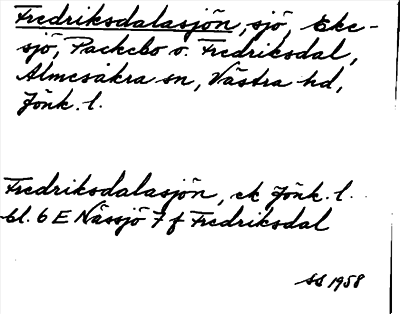 Fredriksdalasjön, sjö, Eke-
sjö, Packebo o. Fredriksdal,
Almesåkra sn, Västra hd,
Jönk. l.
Fredriksdalasjön, ek Jönk. l.
bl. 6 E Nässjö 7 f Fredriksdal
SS 1958